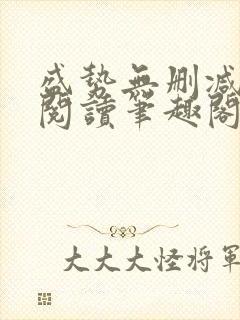 盛勢無刪減
閱讀筆趣閣
大大大怪將軍